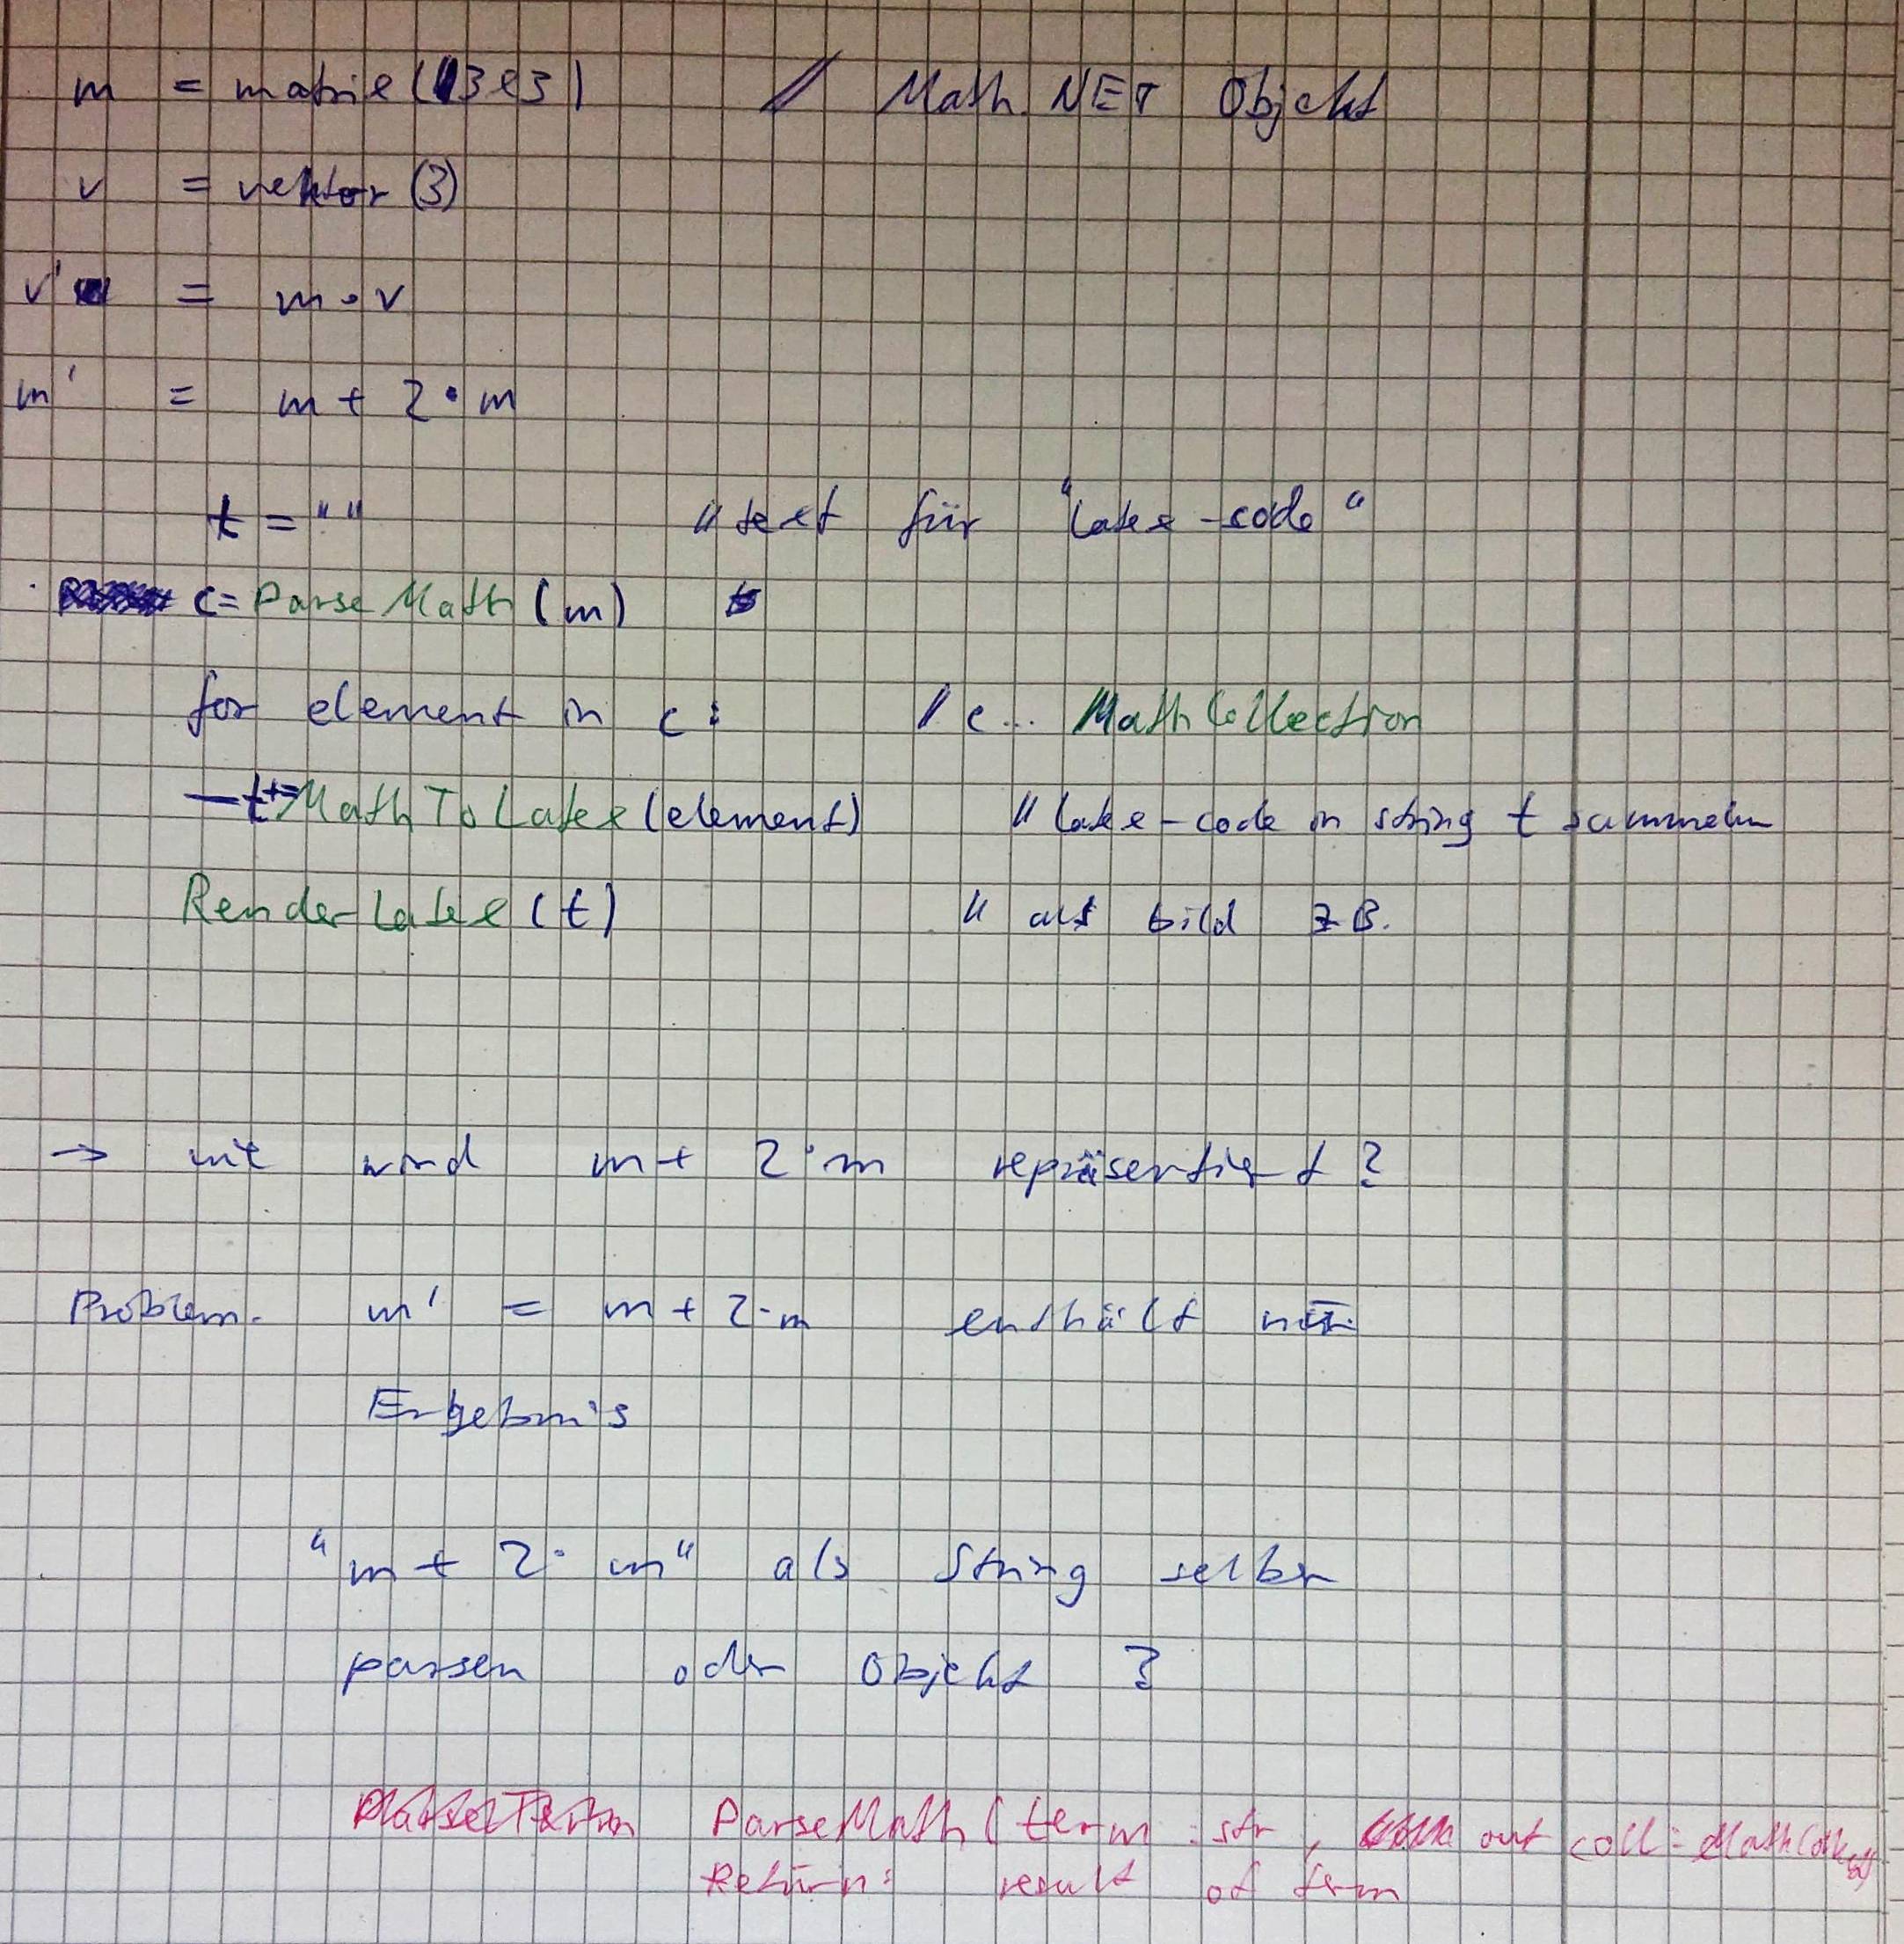 m = matrix(3x3) // Math.NET Objekt
v = vektor (3)
v' = m·v
m' = m + 2·m
t = "" // text für "latex-code"
c = ParseMath(m)
for element in c: // c... MathCollection
t+=MathToLatex(element) // latex-code in string t sammeln
RenderLatex(t) // als bild z B.
→ wie wird m + 2·m repräsentiert?
Problem: m' = m + 2·m enthält nur
Ergebnis
"m + 2·m" als String selber
parsen oder Objekt ?
ParseMath(term : str, out coll : MathCollect)
Return: result of term